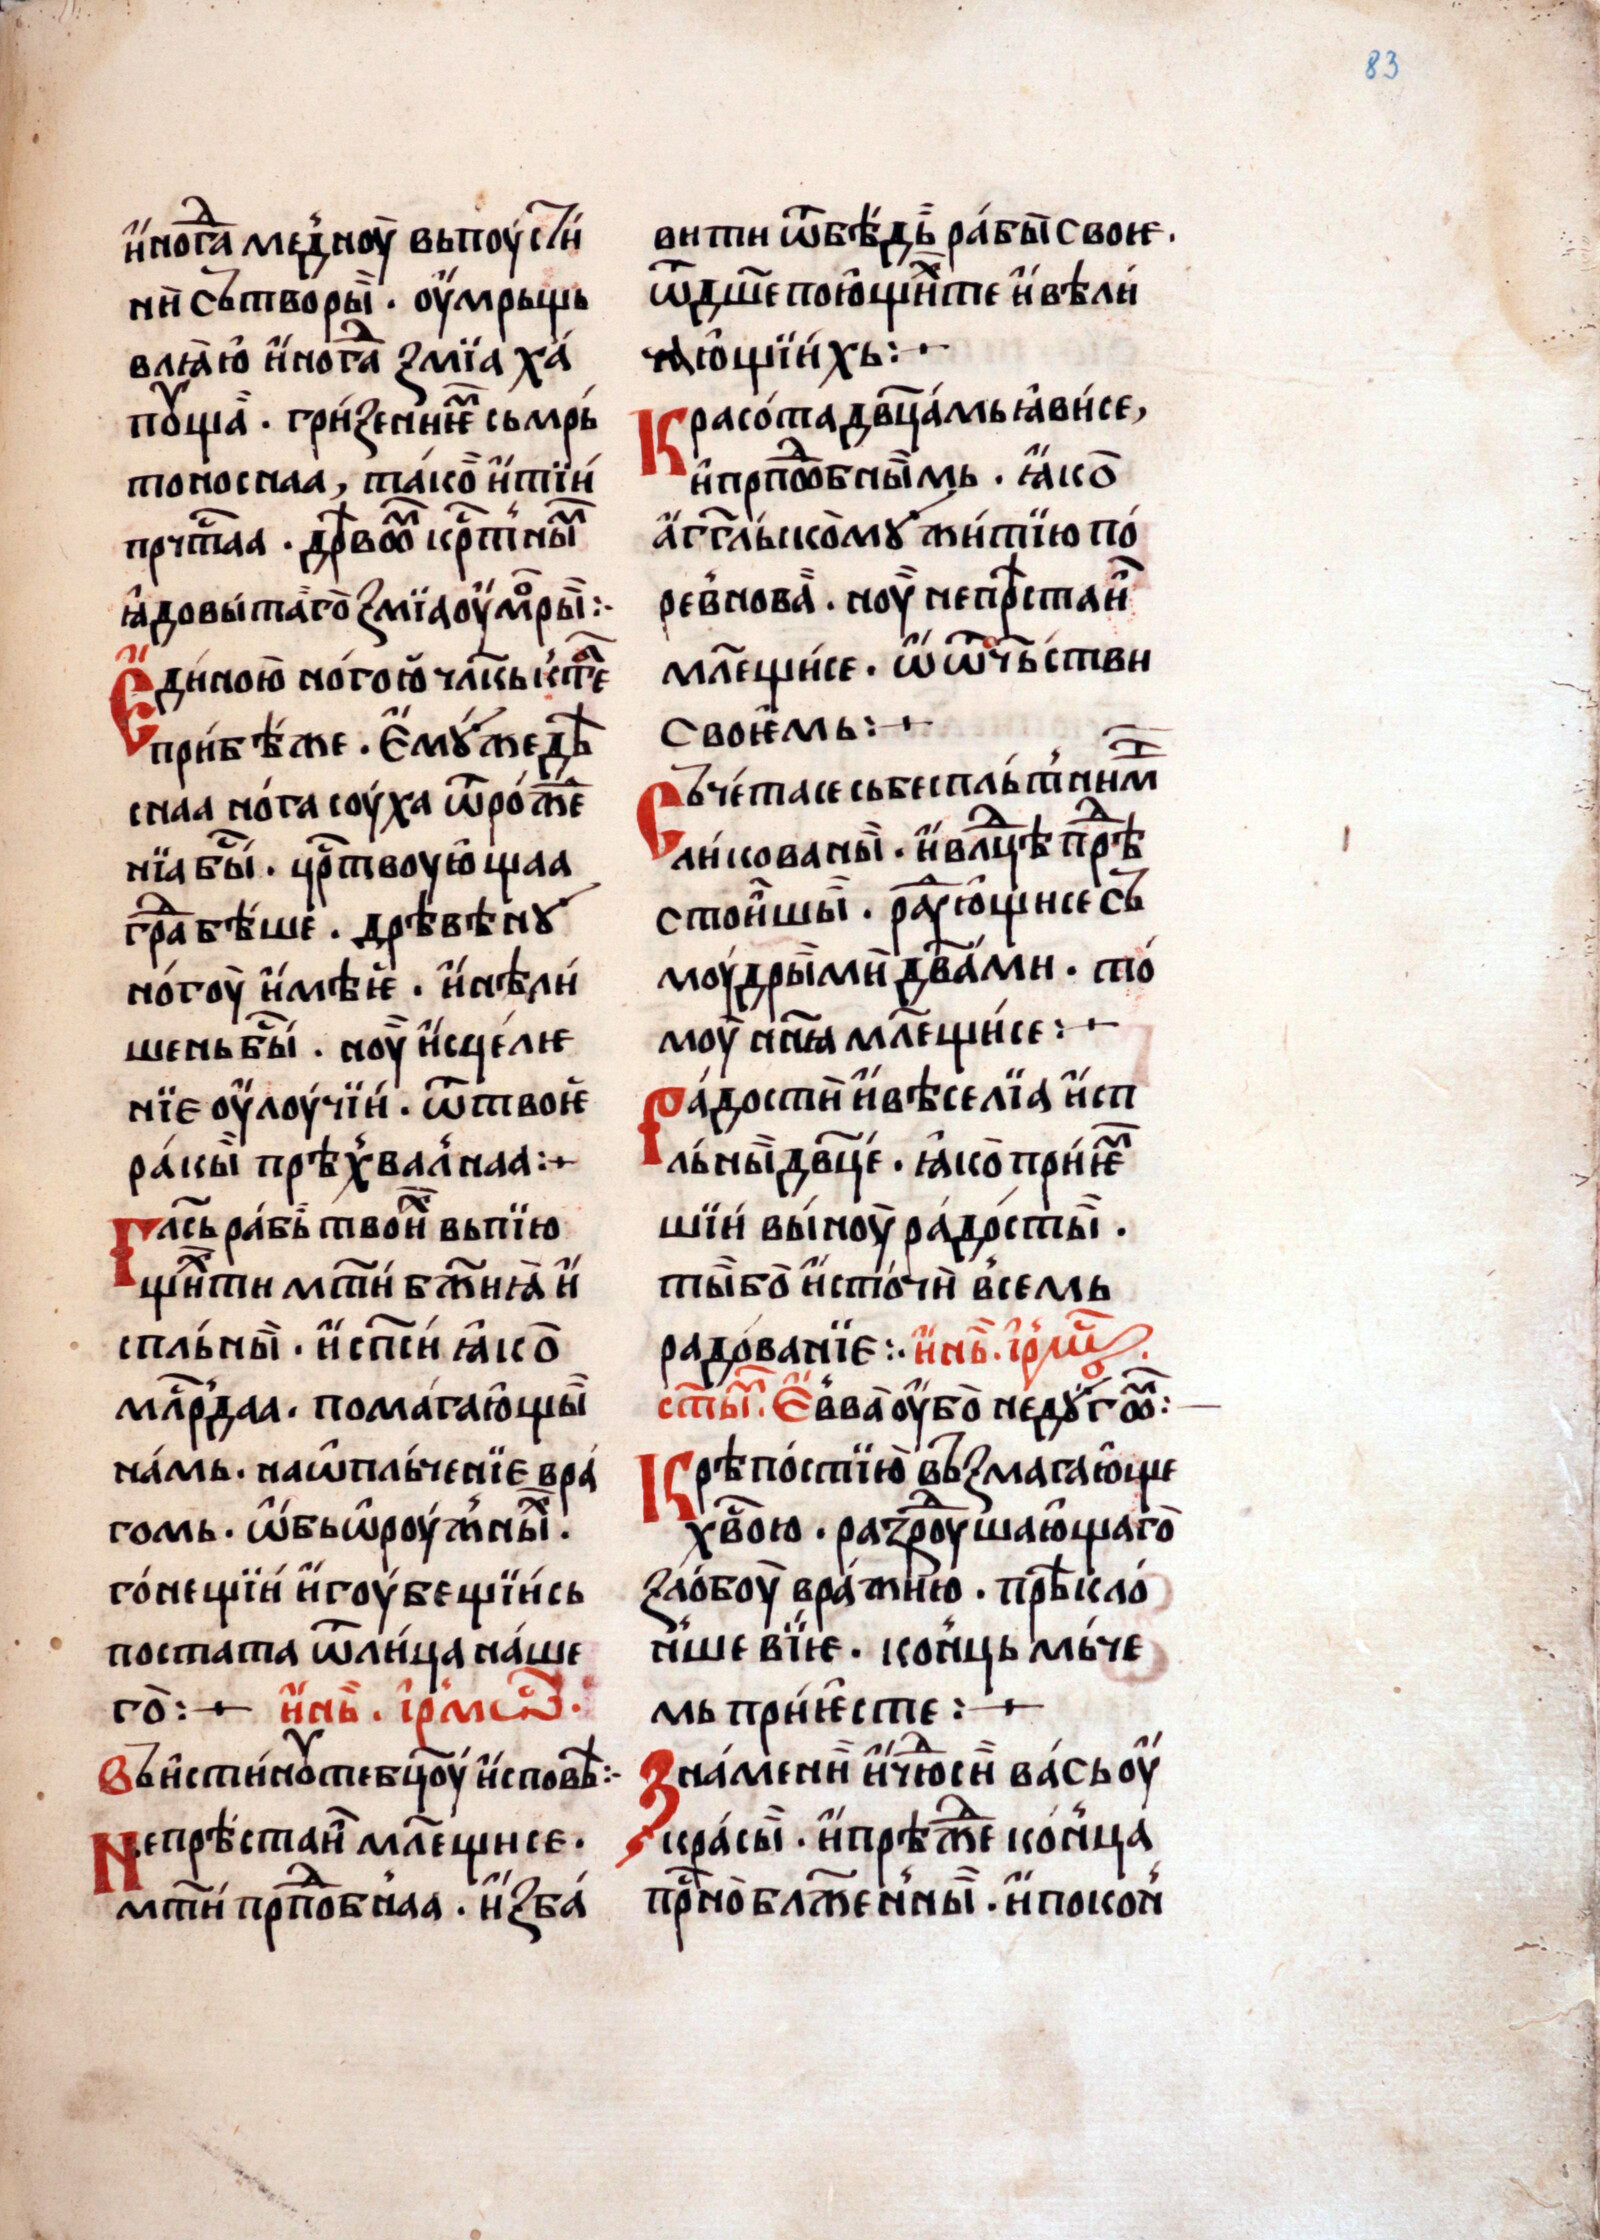 83
и҆но́гⷣа мѣ́дноую̀ вьпоусты́
ни̏ сътворы̏ . оу҆мрьщь
влꙗ́ю и҆но́гⷣа ꙁмїа ха́
поуща̏ . гри́ꙁениѥⷨ сьмрь
тоноснаа, та́ко̏ и҆ тїи́
прчⷭ҇таа . дрѣвоⷨ кръⷭ҇тныⷨ
ꙗ҆дови́таго̏ ꙁмїа оу҆мо́ры̏ :·
Е҆ди́ною но́гою чл҃кь к тебѣ
при́бѣже . е҆моуже дѣ
снаа но́га соу́ха ѿ ро́жⷣе
нїа бы́ⷭ . црⷭ҇твоую҆щаа
граⷣ бѣ́ше . дрѣвѣноу
но́гоу и҆мѣѥ . и҆ нѣли
шень бы́ⷭ . ноу̏ и҆сцеле
нїе оу҆лоучїи́ . ѿ твоѥ
ра́кы̏ прѣхва́лнаа :·
Гла́сь ра́бь твои́ⷯ вьпїю
щи́ⷯ ти мт҃и бж҃иꙗ и҆
спльны̏ . и҆ сп҃си ꙗ҆ко̏
млⷭ҇рдаа . помага́ющы̏
на́мь . на ѡ҆пльче́нїе вра́
гомь . ѡ҆бьѡ҆роужны́ⷯ .
го́нещїи́ и҆ гоу́бещїи́ сь
постата ѿ ли́ца на́ше
го̏ : и҆нь . і҆рмоⷭ҇ .
Въи҆сти́ноу те бц҃оу и҆сповѣ :·
Непрѣста́нⷩ мл҃ещи се .
мт҃и прпⷣобнаа . и҆ꙁба́
вити ѿ бѣ́дь ра́бы̏ своѥ .
ѿ дш҃е пою҆щи́ⷯ те и҆ вѣли́
чаю҆щїи́хь :
Красо́та дв҃ца́мь ꙗ҆ви́ се,
и҆ прпⷣо́бны̏мь . ꙗ҆ко̏
а҆гг҃льско́моу жи́тїю по́
ре́внова̏ . ноу̏ непрⷭѣ́стаⷩ
мл҃ещи́ се . ѡ҆ ѿчь́стви
своѥ҆мь :
Съчета се сь бесплътниⷨ
ли́кованы̏ . и҆ влⷣцѣ прⷣѣ
стои́вшы̏ . раⷣую҆щи се съ
моу́дры̏ми̏ дв҃а́ми . то́
моу̏ нн҃ꙗ мл҃ещи́ се :
Ра́дости̏ и҆ вѣселїа и҆сп
льны̏ дв҃це́ . ꙗ҆ко̏ при́ѥⷨ
шїи́ вы́ноу̏ ра́до́сты̏ .
ты̏ бо̏ и҆сто́чни̏ всемь
радо́ванїе :· и҆нь . і҆рмоⷭ҇ .
ст҃ыⷨ . Е҆вва̏ оу҆бо̏ недоугоⷨ :
Крѣпо́стїю̏ въꙁмага́юще
хв҃ою . раꙁдроуша́ю҆щаго̏
ꙁло́боу̏ вражи́ю . прⷣѣкло́
ньше вїѥ . коньць мьче
мь при́ѥ҆сте :
Ꙁна́мени̏ и҆ чюⷣси̏ ва́сь оу҆
кра́сы̏ . и҆ прѣ́жⷣе ко́нца
прⷭ҇но̏ бл҃жены̏ . и҆ поко́н